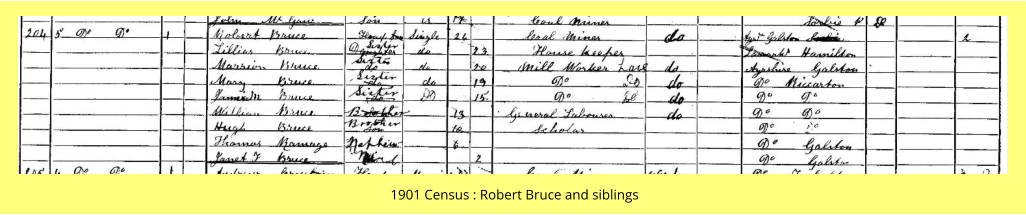 John Mc Gaw Son 17 Coal Miner
204 5 Do Do 1 Robert Bruce Single 26 Coal Miner do Ayr Galston 2
Lillias Bruce Sister do 23 House Keeper Lanark Hamilton
Marrion Bruce Sister do 20 Mill Worker Lace do Ayrshire Galston
Mary Bruce Sister do 19 Do Do do Do Riccarton
Bruce Sister Do 15 Do Do do Do Do
William Bruce Brother 13 General Labourer do Do Do
Hugh Bruce Brother 10 Scholar Do Do
Thomas Ramage Nephew 6 Do Galston
Janet F Bruce 2 Do Galston
Do Do 1
1901 Census : Robert Bruce and siblings